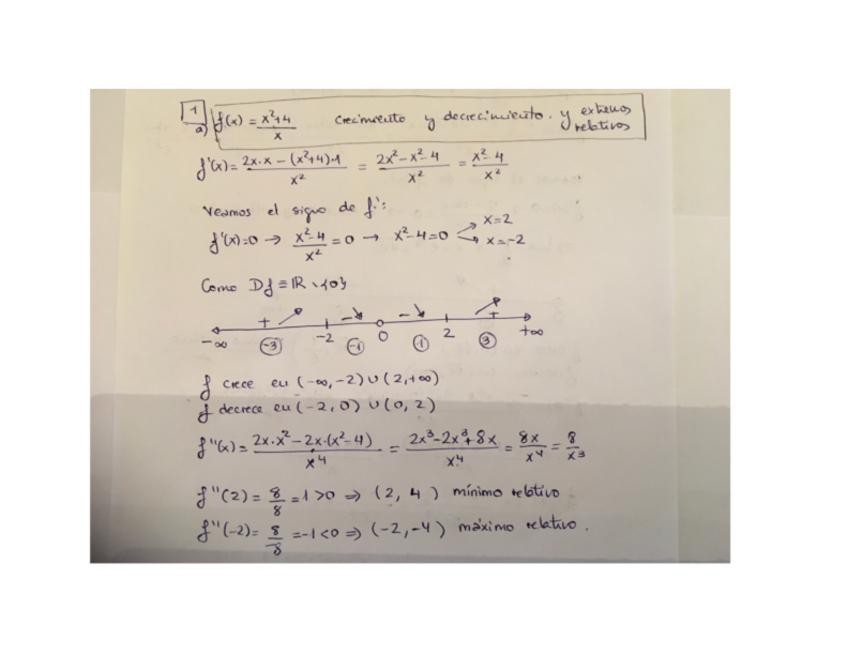 1 a) f(x) = (x²+4)/x crecimiento y decrecimiento. y extremos relativos
f'(x) = (2x·x − (x²+4)·1)/x² = (2x²−x²−4)/x² = (x²−4)/x²
Veamos el signo de f':
f'(x)=0 → (x²−4)/x² = 0 → x²−4=0 → x=2 → x=−2
Como Df ≡ ℝ \ {0}
+ ↗ − ↘ − ↘ ↗ +
−∞ (−3) −2 (−1) 0 (1) 2 (3) +∞
f crece en (−∞, −2) ∪ (2, +∞)
f decrece en (−2, 0) ∪ (0, 2)
f''(x) = (2x·x² − 2x·(x²−4))/x⁴ = (2x³−2x³+8x)/x⁴ = 8x/x⁴ = 8/x³
f''(2) = 8/8 = 1 > 0 ⇒ (2, 4) mínimo relativo
f''(−2) = 8/−8 = −1 < 0 ⇒ (−2, −4) máximo relativo.